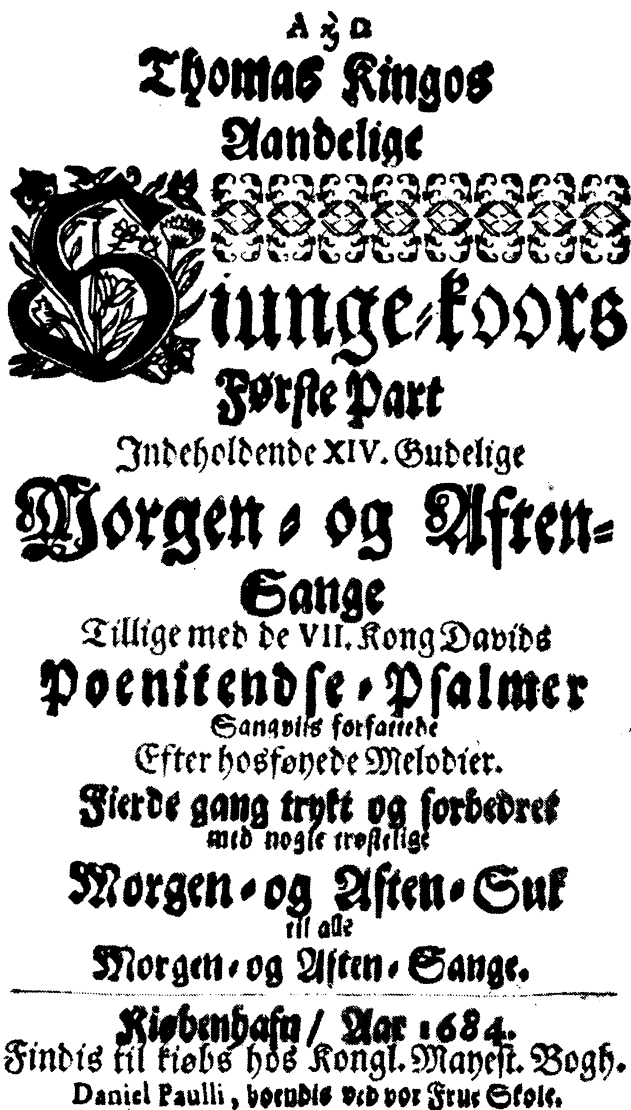 A & Ω
Thomas Kingos
Aandelige
Siunge-koors
Første Part
Indeholdende XIV. Gudelige
Morgen- og Aften-
Sange
Tillige med de VII. Kong Davids
Poenitendse-Psalmer
Sangviis forfattede
Efter hosføyede Melodier.
Fierde gang trykt og forbedret
med nogle trøstelige
Morgen- og Aften-Suk
til alle
Morgen- og Aften-Sange.
Kiøbenhafn / Aar 1684.
Findis til kiøbs hos Kongl. Mayest. Bogh.
Daniel Paulli, boendis ved vor Frue Skole.